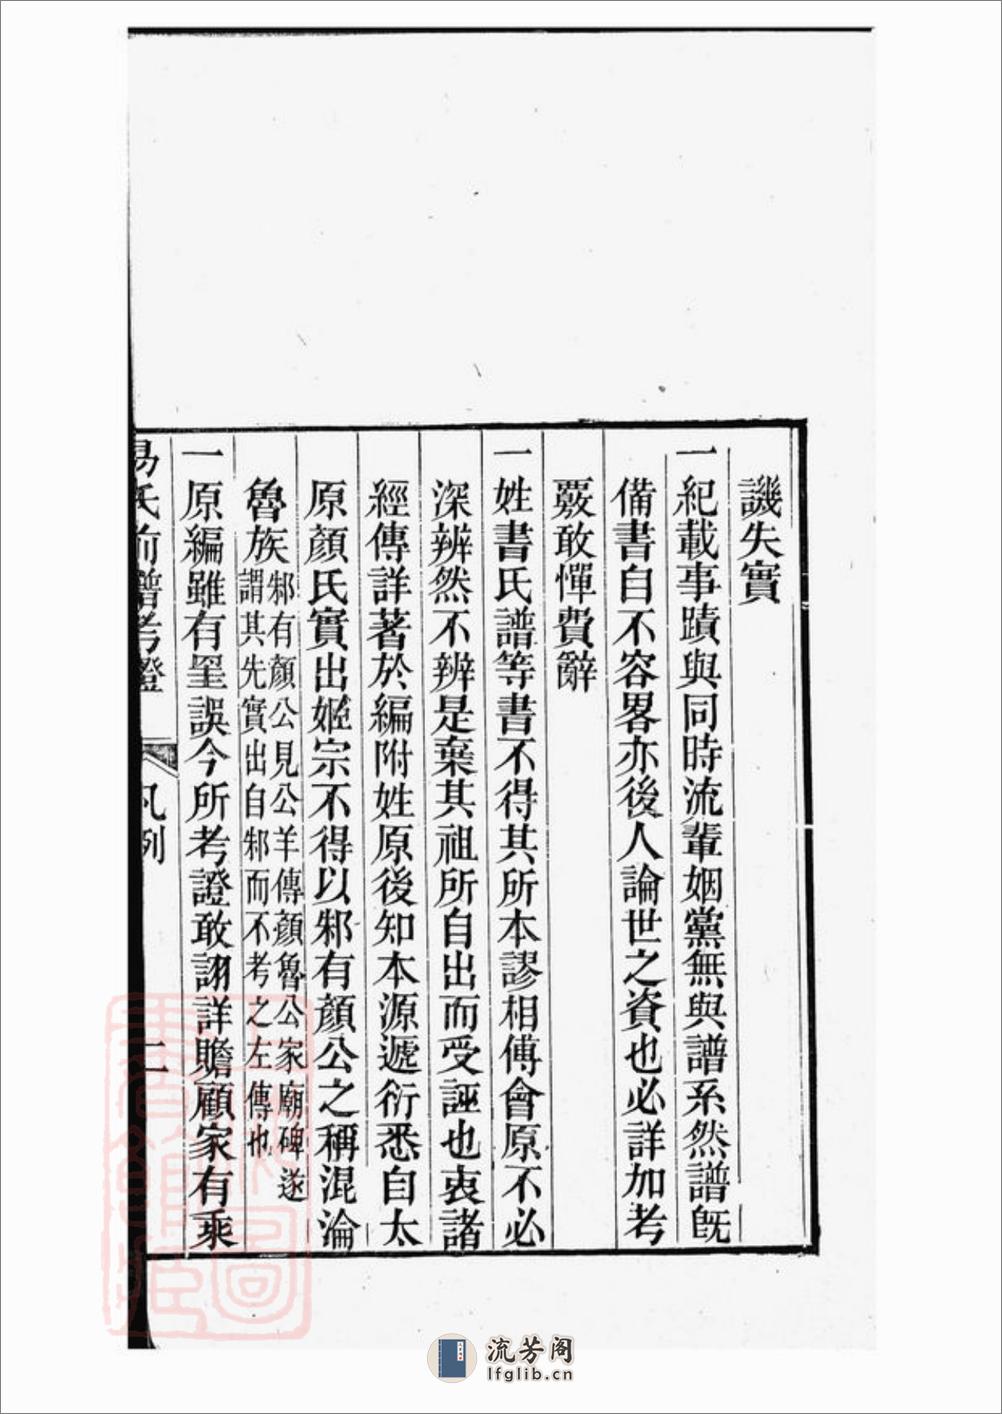 譏失實
一紀載事蹟與同時流輩姻黨無與譜系然譜旣
備書自不容畧亦後人論世之資也必詳加考
覈敢憚費辭
一姓書氏譜等書不得其所本謬相傅會原不必
深辨然不辨是棄其祖所自出而受誣也衷諸
經傳詳著於編附姓原後知本源遞衍悉自太
原顏氏實出姬宗不得以邾有顏公之稱混淪
魯族邾有顏公見公羊傳顏魯公家廟碑遂
謂其先實出自邾而不考之左傳也
一原編雖有罣誤今所考證敢詡詳贍顧家有乘
易氏前譜考證
凡例
二
流芳阁
lfglib.cn